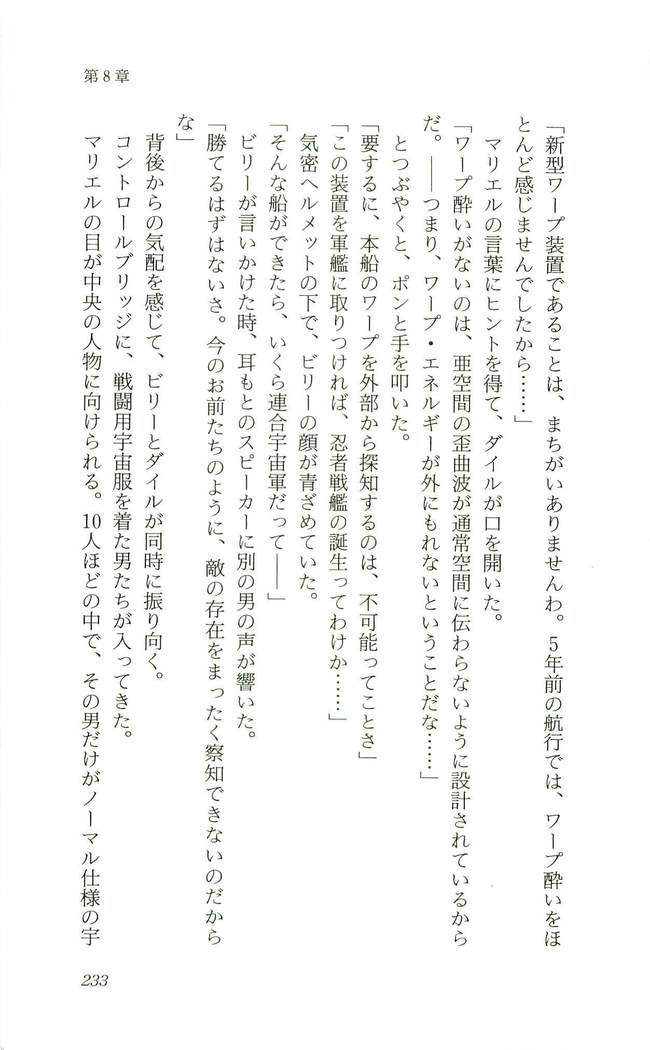 第8章
「新型ワープ装置であることは、まちがいありませんわ。5年前の航行では、ワープ酔いをほ
とんど感じませんでしたから……」
マリエルの言葉にヒントを得て、ダイルが口を開いた。
「ワープ酔いがないのは、亜空間の歪曲波が通常空間に伝わらないように設計されているから
だ。――つまり、ワープ・エネルギーが外にもれないということだな……」
とつぶやくと、ポンと手を叩いた。
「要するに、本船のワープを外部から探知するのは、不可能ってことさ」
「この装置を軍艦に取りつければ、忍者戦艦の誕生ってわけか……」
気密ヘルメットの下で、ビリーの顔が青ざめていた。
「そんな船ができたら、いくら連合宇宙軍だって――」
ビリーが言いかけた時、耳もとのスピーカーに別の男の声が響いた。
「勝てるはずはないさ。今のお前たちのように、敵の存在をまったく察知できないのだから
な」
背後からの気配を感じて、ビリーとダイルが同時に振り向く。
コントロールブリッジに、戦闘用宇宙服を着た男たちが入ってきた。
マリエルの目が中央の人物に向けられる。10人ほどの中で、その男だけがノーマル仕様の宇
233